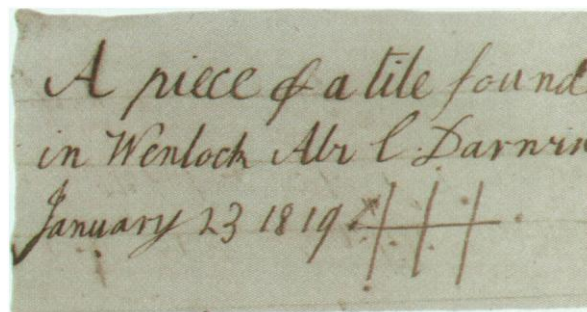 A piece of a tile found
in Wenlock Abr C. Darwin
January 23 1819